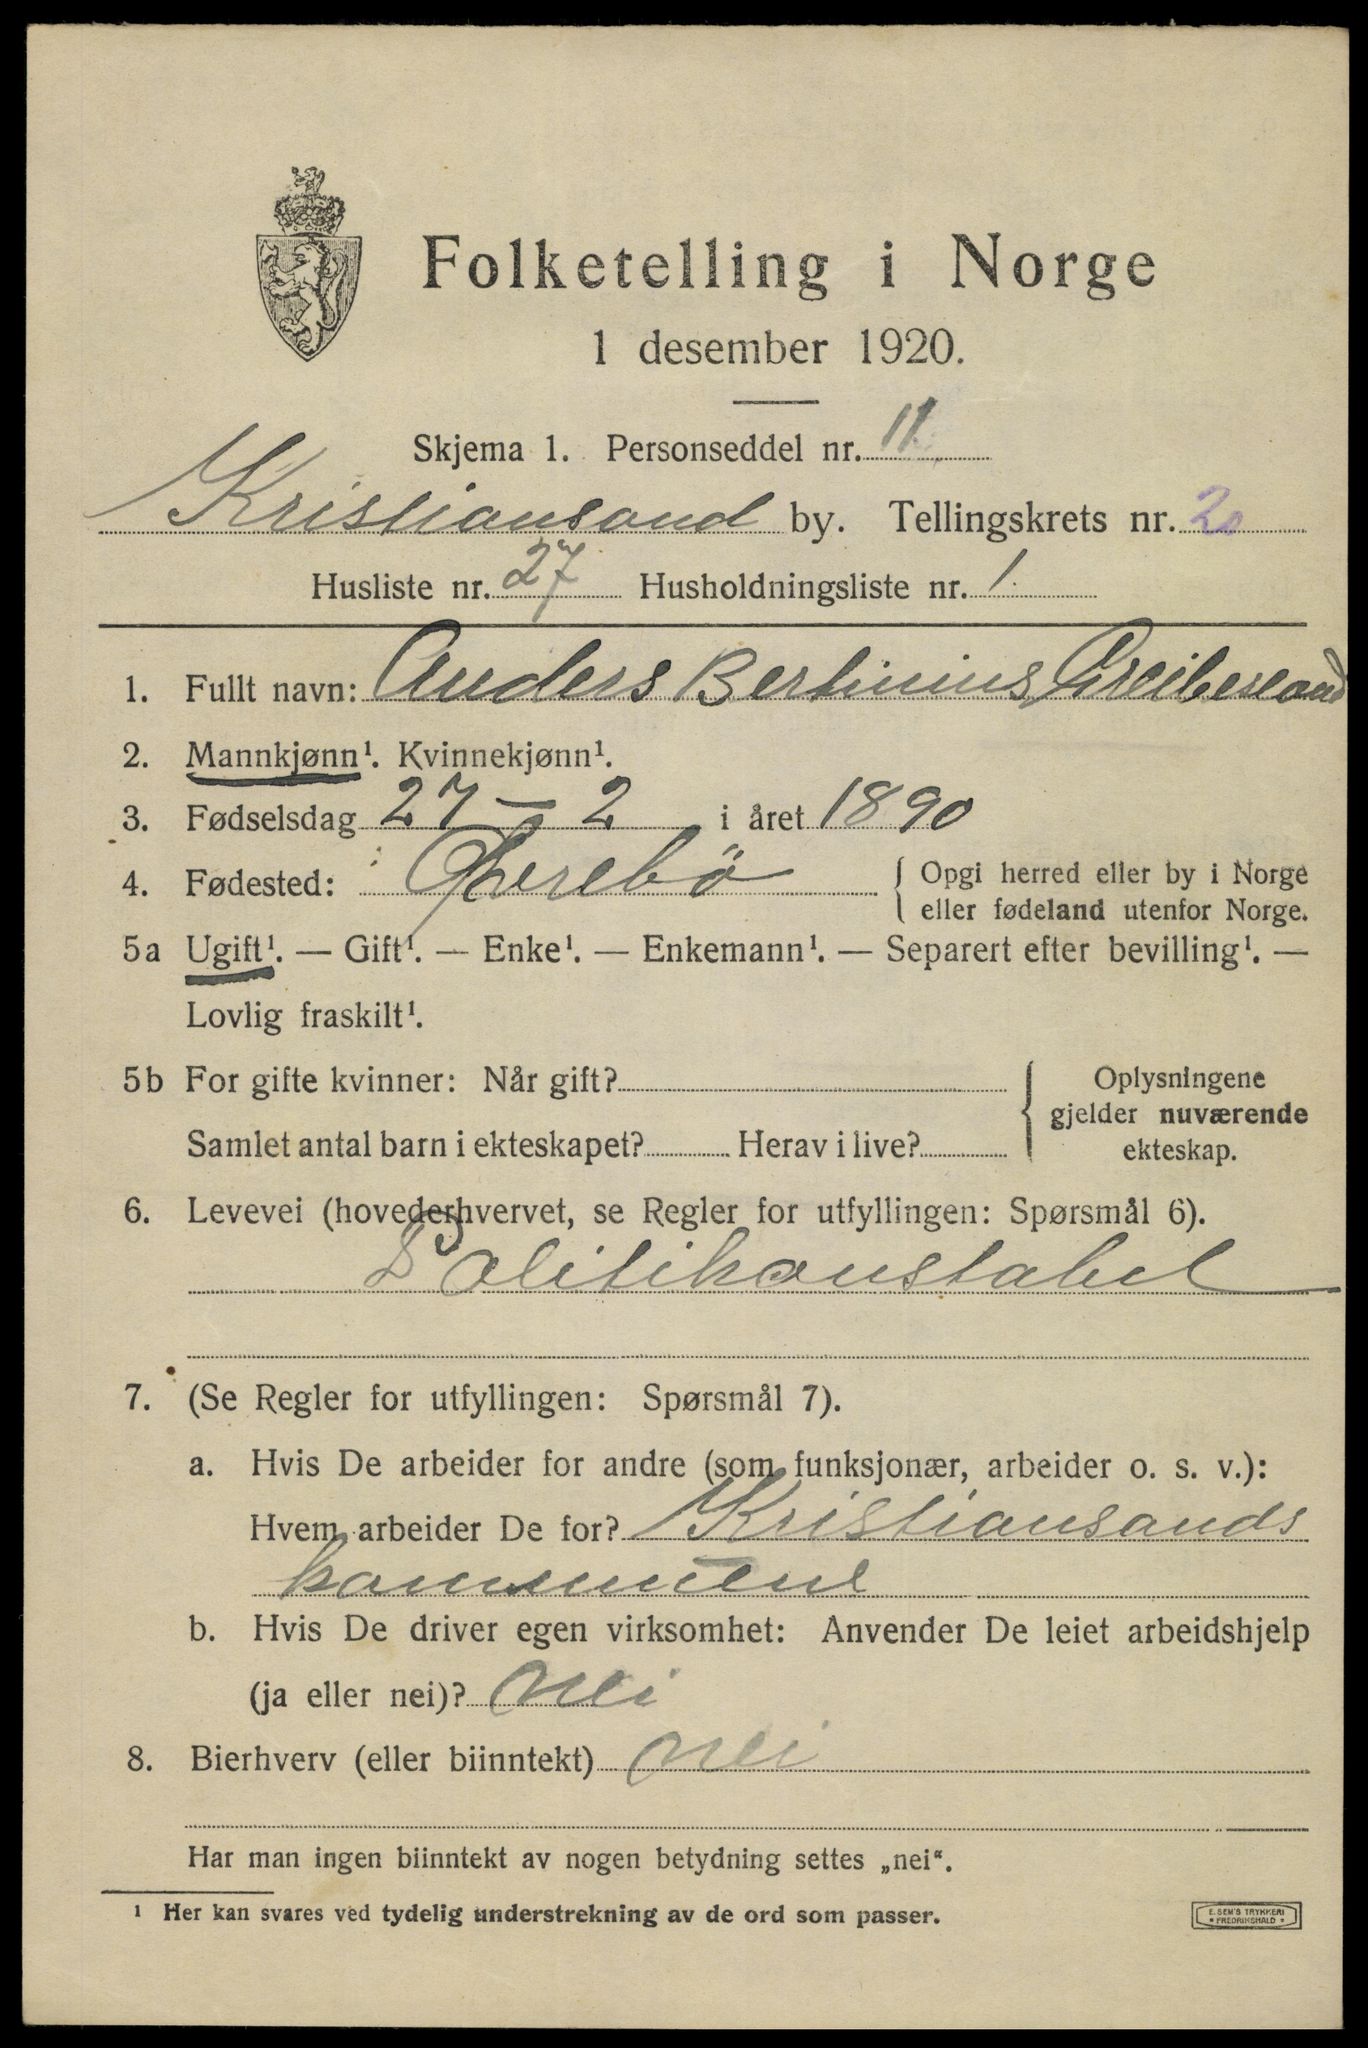 Folketelling i Norge
1 desember 1920.
Skjema 1. Personseddel nr. 11.
Kristiansand by. Tellingskrets nr. 2
Husliste nr. 27 Husholdningsliste nr. 1.
1. Fullt navn: Anders Bertinius Greibesland
2. Mannkjønn¹. Kvinnekjønn¹.
3. Fødselsdag 27 – 2 i året 1890
4. Fødested: Øvrebö { Opgi herred eller by i Norge
eller fødeland utenfor Norge.
5a Ugift¹. — Gift¹. — Enke¹. — Enkemann¹. — Separert efter bevilling¹. —
Lovlig fraskilt¹.
5b For gifte kvinner: Når gift? { Oplysningene
gjelder nuværende
Samlet antal barn i ekteskapet? Herav i live? ekteskap.
6. Levevei (hovederhvervet, se Regler for utfyllingen: Spørsmål 6).
Politikonstabel
7. (Se Regler for utfyllingen: Spørsmål 7).
a. Hvis De arbeider for andre (som funksjonær, arbeider o. s. v.):
Hvem arbeider De for? Kristiansands
kommune
b. Hvis De driver egen virksomhet: Anvender De leiet arbeidshjelp
(ja eller nei)? nei
8. Bierhverv (eller biinntekt) nei
Har man ingen biinntekt av nogen betydning settes „nei“.
¹ Her kan svares ved tydelig understrekning av de ord som passer.
E. SEM'S TRYKKERI
* FREDRIKSHALD *